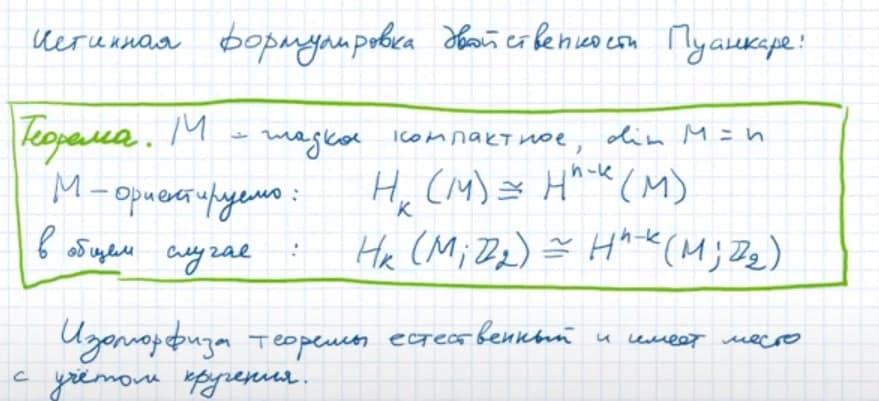 Истинная формулировка двойственности Пуанкаре:
Теорема. M - гладкое компактное, dim M = n
M - ориентируемо: Hₖ(M) ≅ Hⁿ⁻ᵏ(M)
в общем случае : Hₖ(M; ℤ₂) ≅ Hⁿ⁻ᵏ(M; ℤ₂)
Изоморфизм теоремы естественный и имеет место
с учётом кручения.